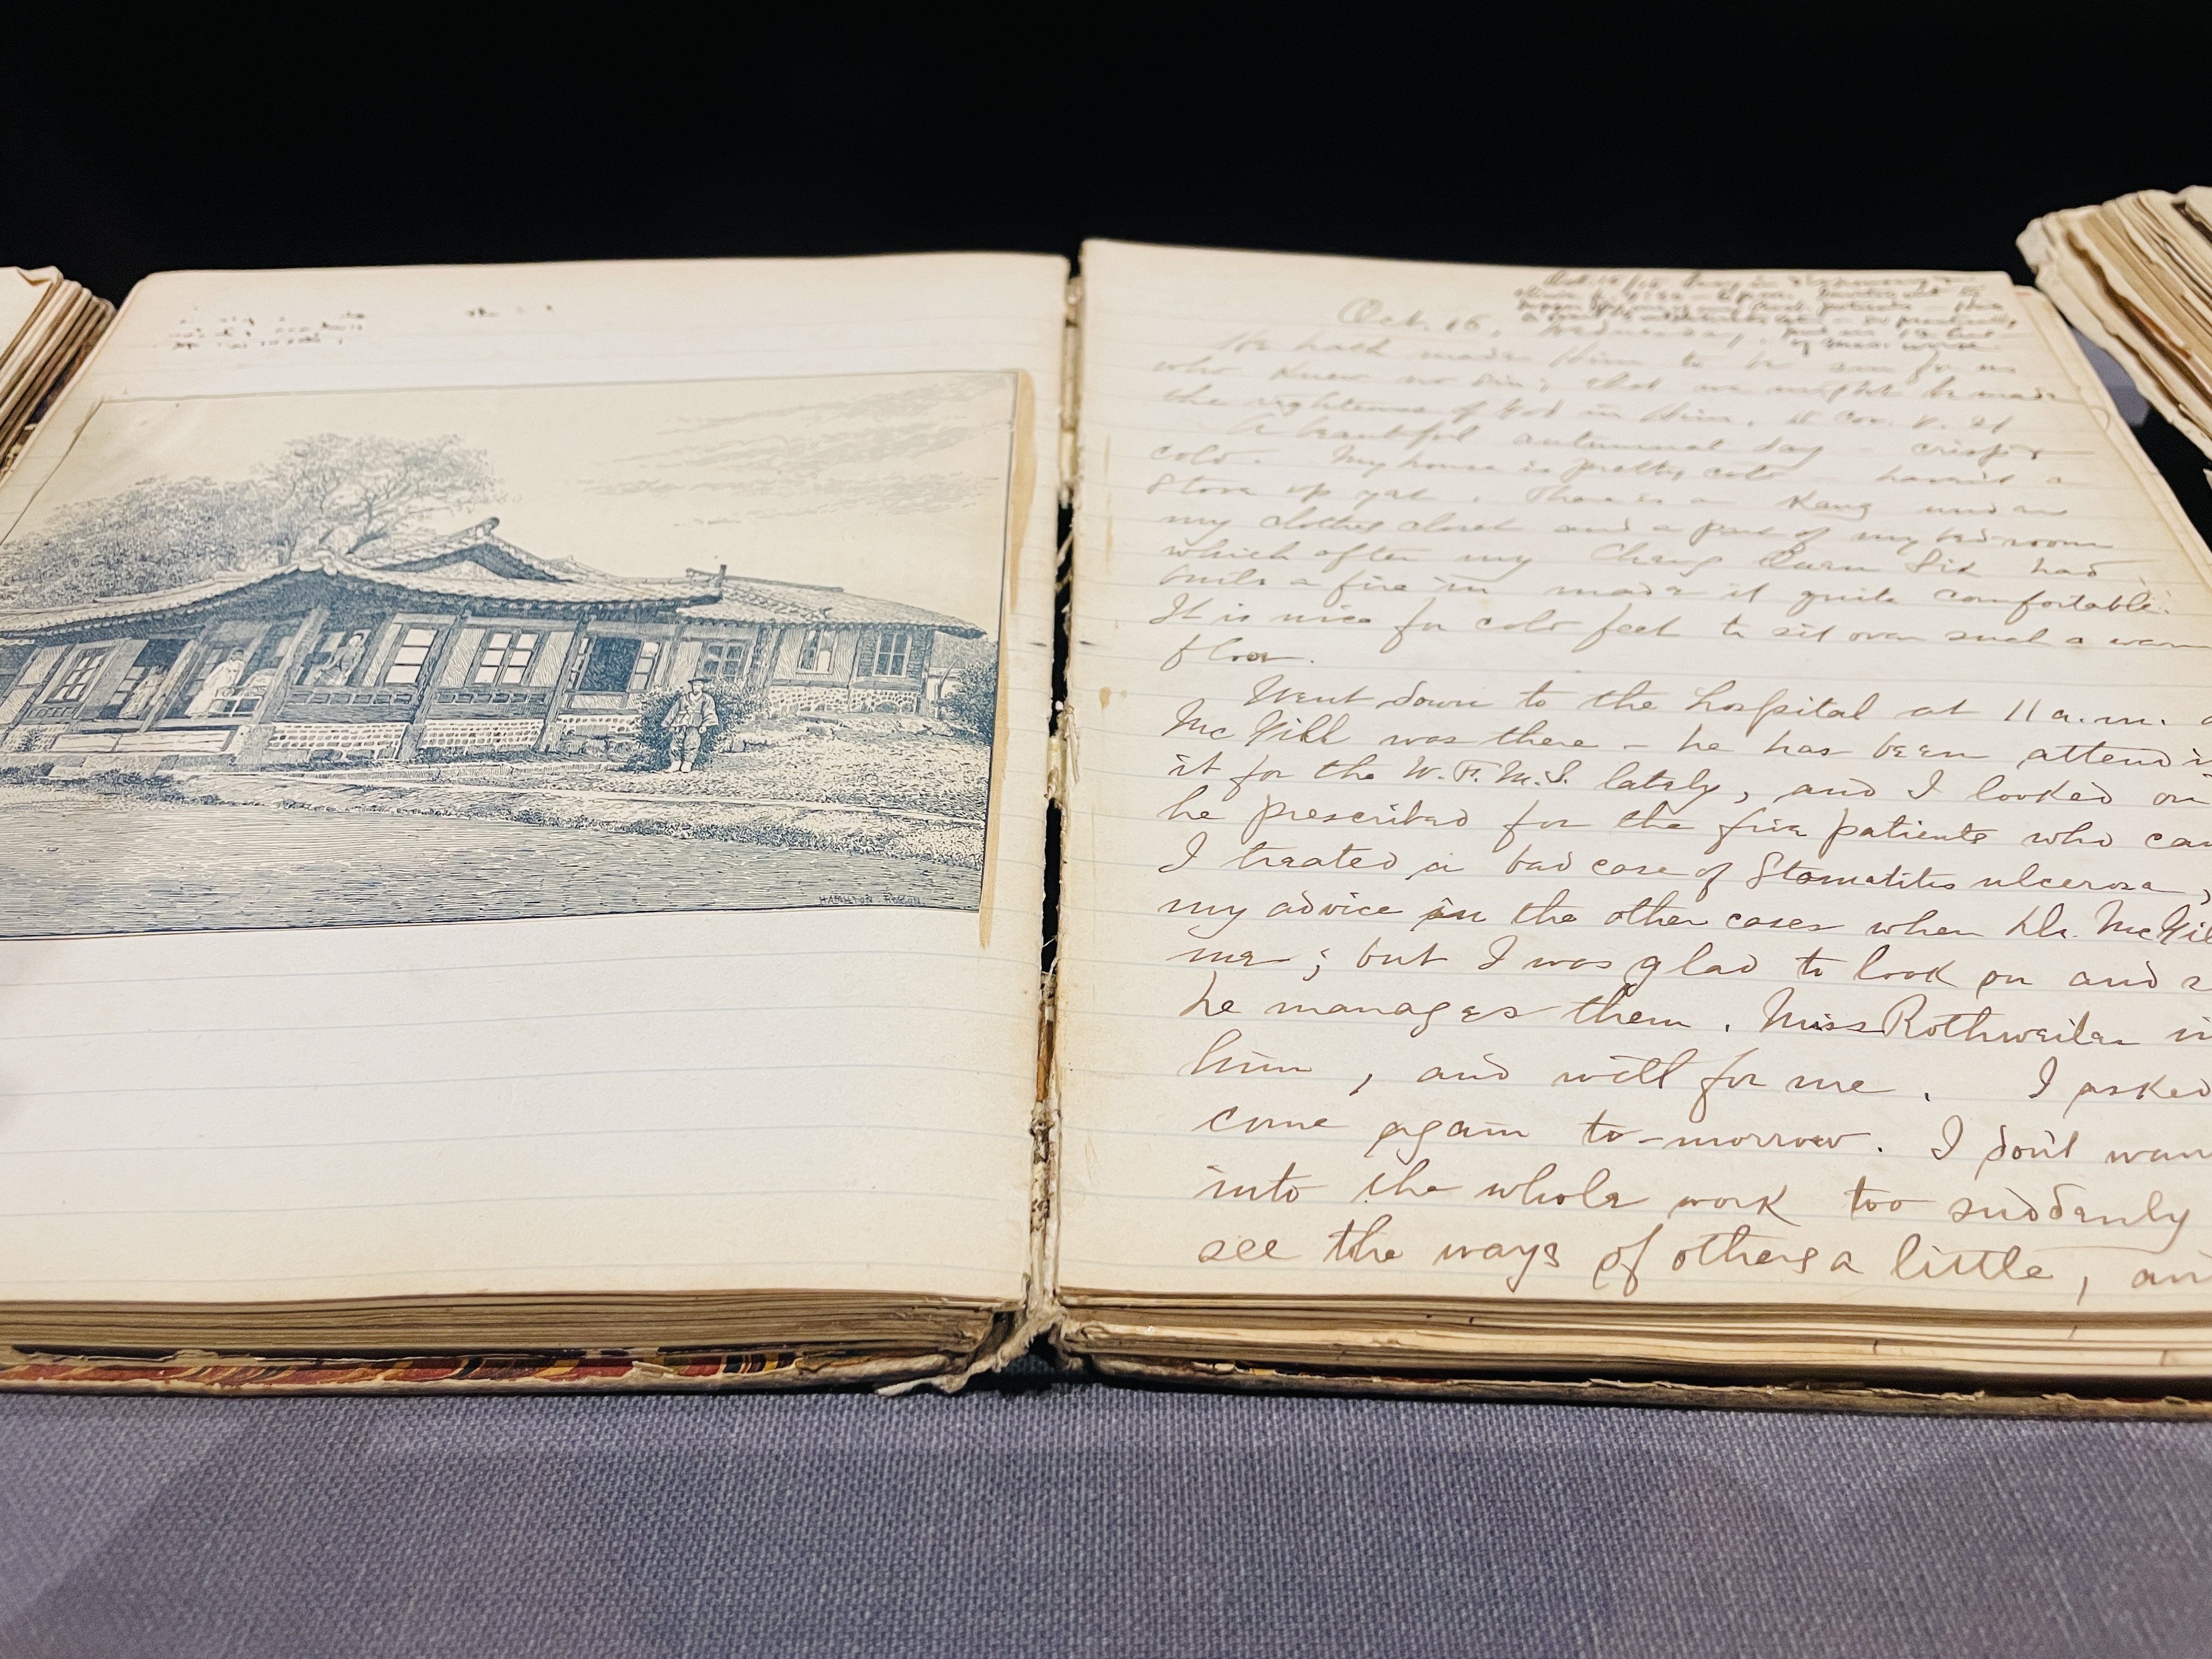 HAMILTON
Oct. 16, Wednesday.
of med. work.
He hath made Him to be sin for us
who knew no sin; that we might be made
the righteousness of God in Him. II Cor. V. 21
A beautiful autumnal day – crisp &
cold. My house is pretty cold – haven't a
Stove up yet. There is a Kang under
my clothes closet and a part of my bed-room
which after my Chang Quan Sik had
built a fire in made it quite comfortable.
It is nice for cold feet to sit over such a warm
floor.
Went down to the hospital at 11 a.m.
McGill was there – he has been attend
it for the W.F.M.S. lately, and I looked on
he prescribed for the five patients who
I treated a bad case of Stomatitis ulcerosa,
my advice in the other cases when Dr. McGil
me; but I was glad to look on and
he manages them. Miss Rothweiler
him, and will for me. I asked
come again to-morrow. I don't wan
into the whole work too suddenly
see the ways of others a little, an